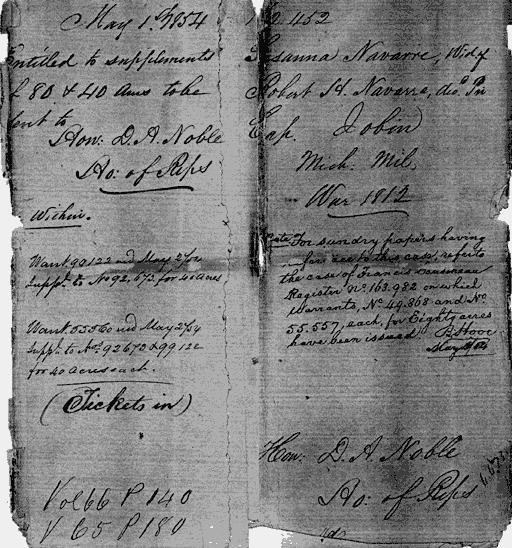 May 1st 1854
Entitled to supplements
of 80 & 40 acres to be
sent to
Hon: D. A. Noble
Ho: of Reps
Within.
Want. 90122 iud May 27/54
Suppl. to No 92,673. for 40 acres
Want. 55560 iud May 27/54
suppl. to Nos. 92670 & 99122
for 40 acres each.
(Tickets in)
Vol 66 P 140
V 65 P 180
452
Susanna Navarre, Wid. of
Robert H. Navarre, decd. Pri
Cap. Jobin
Mich. Mil.
War 1812
Note. For sundry papers having
reference to this case, refer to
the case of Francis
Register No. 163.982 on which
warrants, No. 49.868 and No.
55.557, each, for Eighty acres
have been issued
May
Hon: D. A. Noble
Ho: of Reps